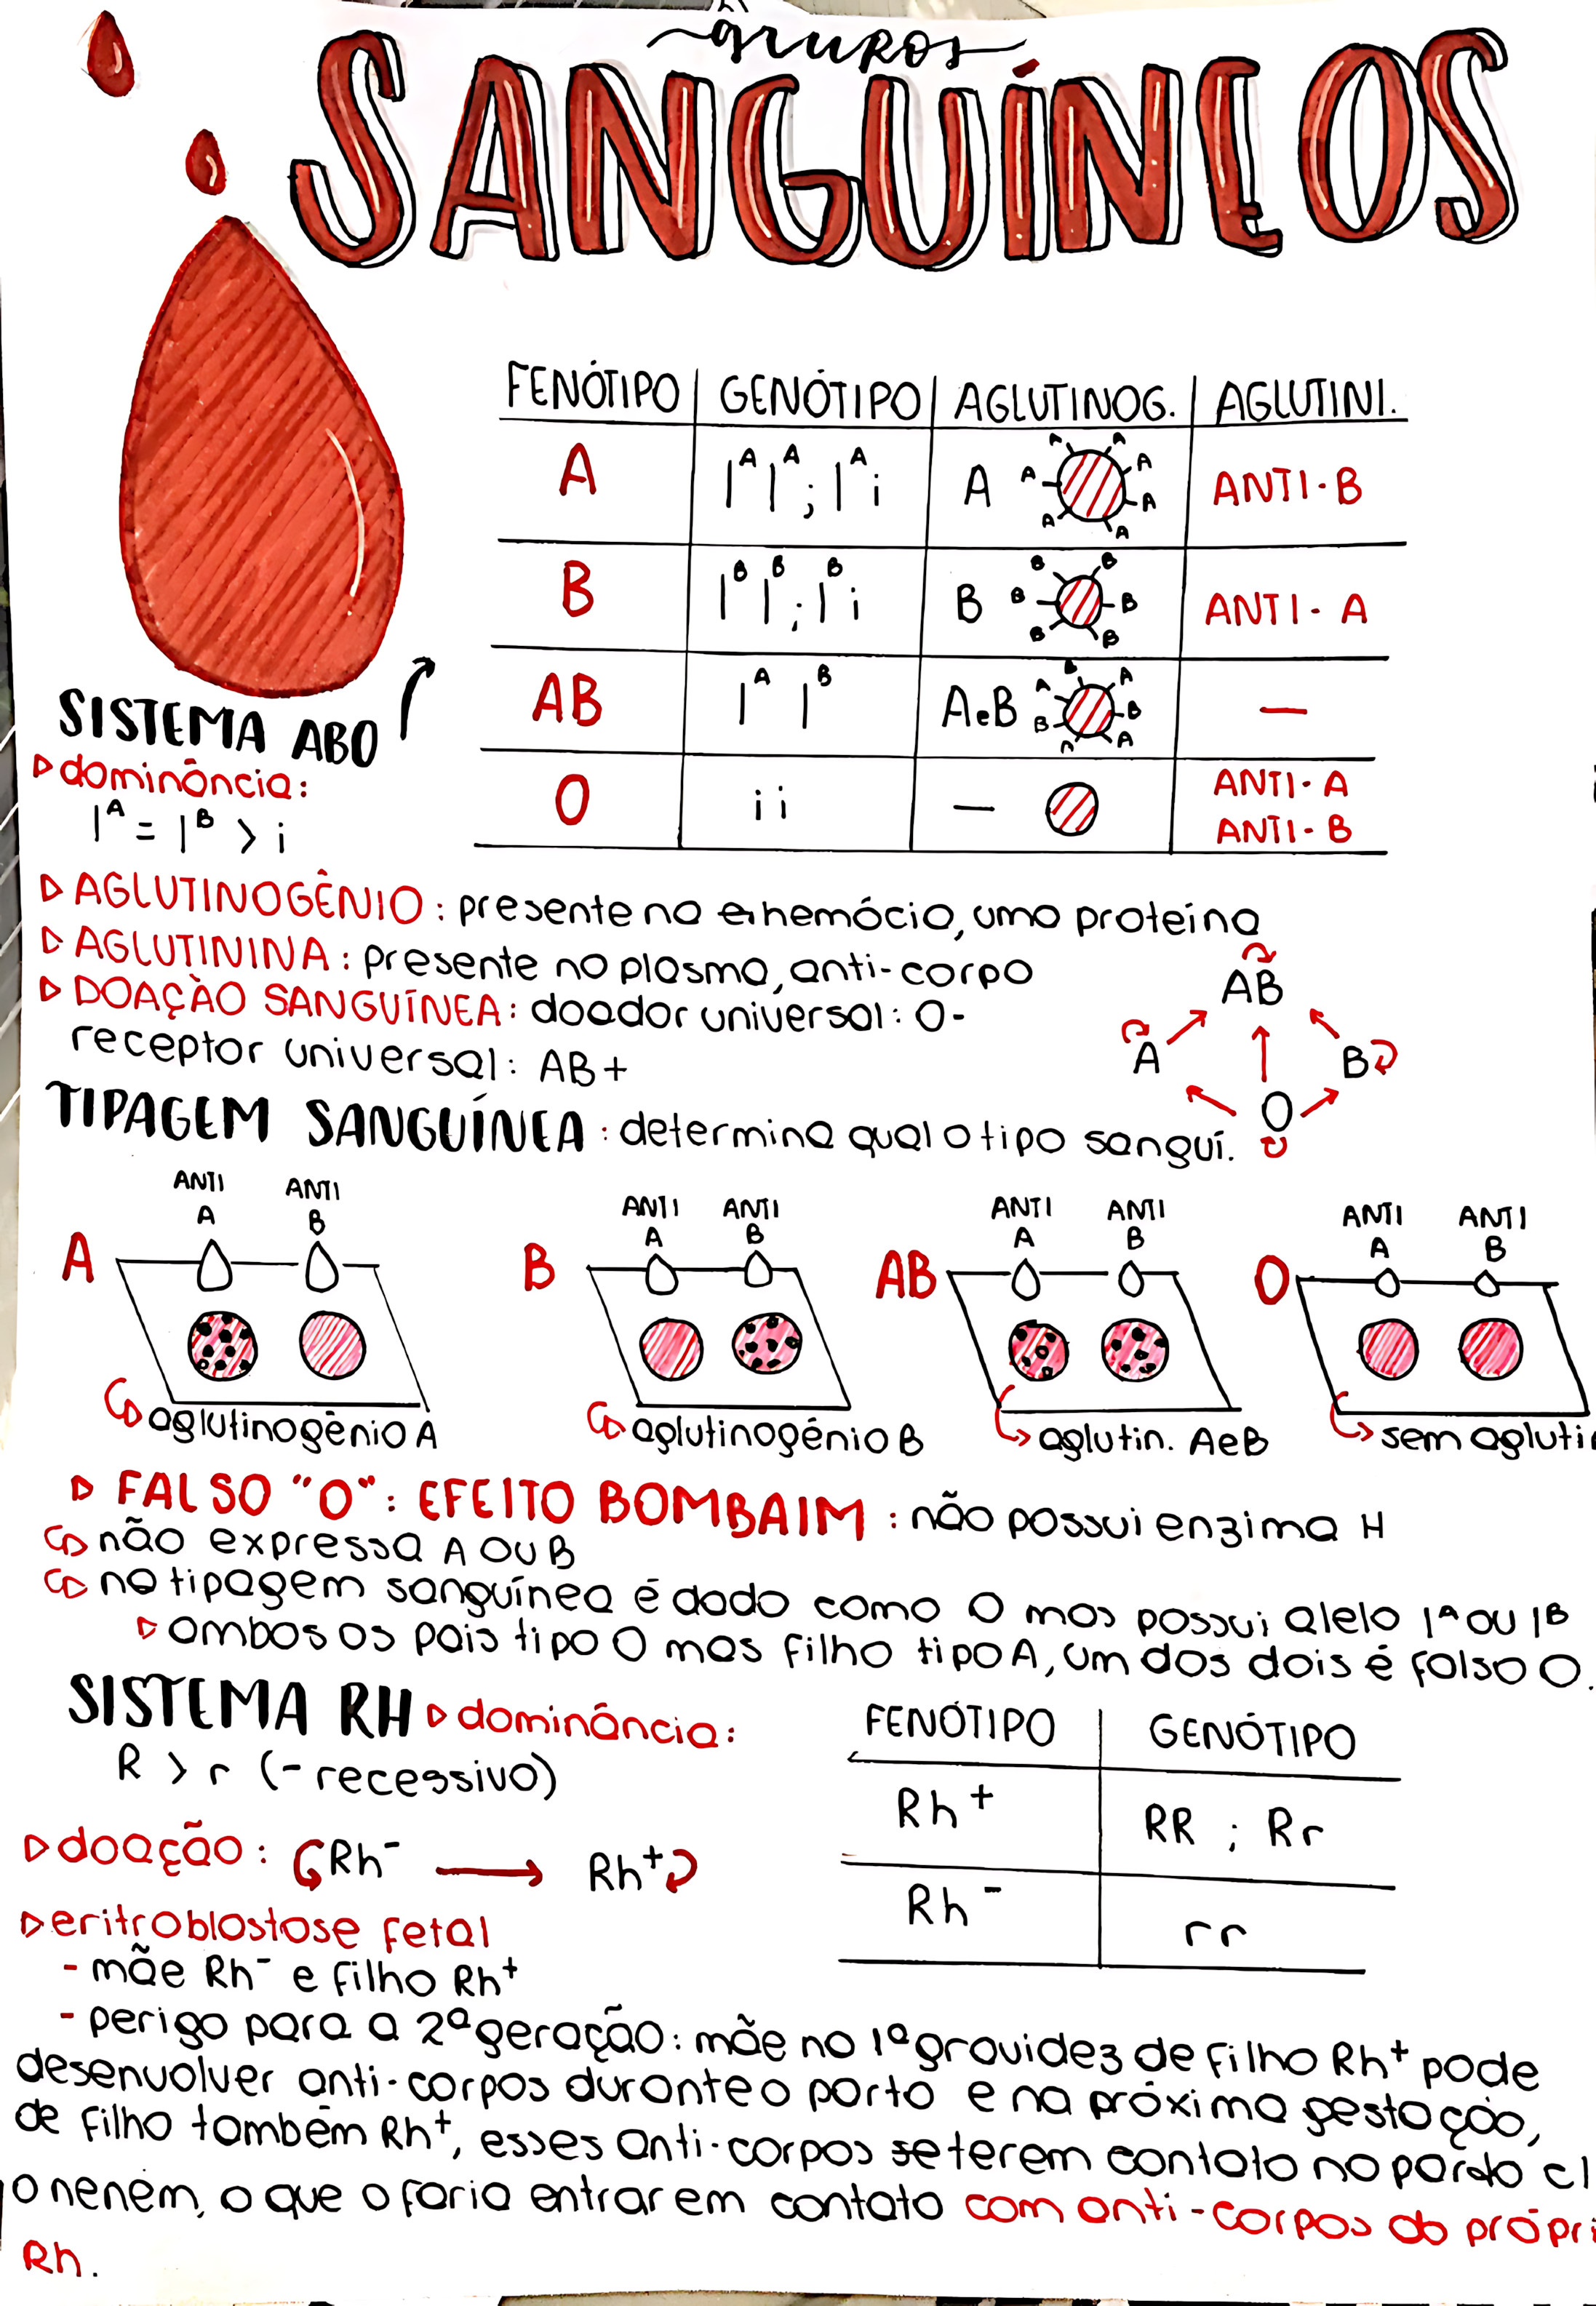 grupos
SANGUÍNEOS
FENÓTIPO GENÓTIPO AGLUTINOG. AGLUTINI.
A IᴬIᴬ; Iᴬi A A A A A A A A ANTI-B
B IᴮIᴮ; Iᴮi B B B B B B B ANTI-A
AB Iᴬ Iᴮ AeB A B A B A A B —
O ii — ANTI-A
ANTI-B
SISTEMA ABO
dominância:
Iᴬ = Iᴮ > i
AGLUTINOGÊNIO: presente na hemácia, uma proteína
AGLUTININA: presente no plasma, anti-corpo
DOAÇÃO SANGUÍNEA: doador universal: O-
receptor universal: AB+
AB
A B
O
TIPAGEM SANGUÍNEA: determina qual o tipo sanguí.
ANTI ANTI ANTI ANTI ANTI ANTI ANTI ANTI
A B A B A B A B
A B AB O
aglutinogênio A aglutinogênio B aglutin. AeB sem agluti
FALSO "O": EFEITO BOMBAIM: não possui enzima H
não expressa A ou B
na tipagem sanguínea é dado como O mas possui alelo Iᴬ ou Iᴮ
ambos os pais tipo O mas filho tipo A, um dos dois é falso O.
SISTEMA RH dominância:
R > r (- recessivo)
FENÓTIPO GENÓTIPO
Rh⁺ RR ; Rr
Rh⁻ rr
doação: Rh⁻ → Rh⁺
eritroblastose fetal
- mãe Rh⁻ e filho Rh⁺
- perigo para a 2ª geração: mãe na 1ª gravidez de filho Rh⁺ pode
desenvolver anti-corpos durante o parto e na próxima gestação,
de filho também Rh⁺, esses anti-corpos se terem contato no parto
o neném, o que o faria entrar em contato com anti-corpos do própri
Rh.